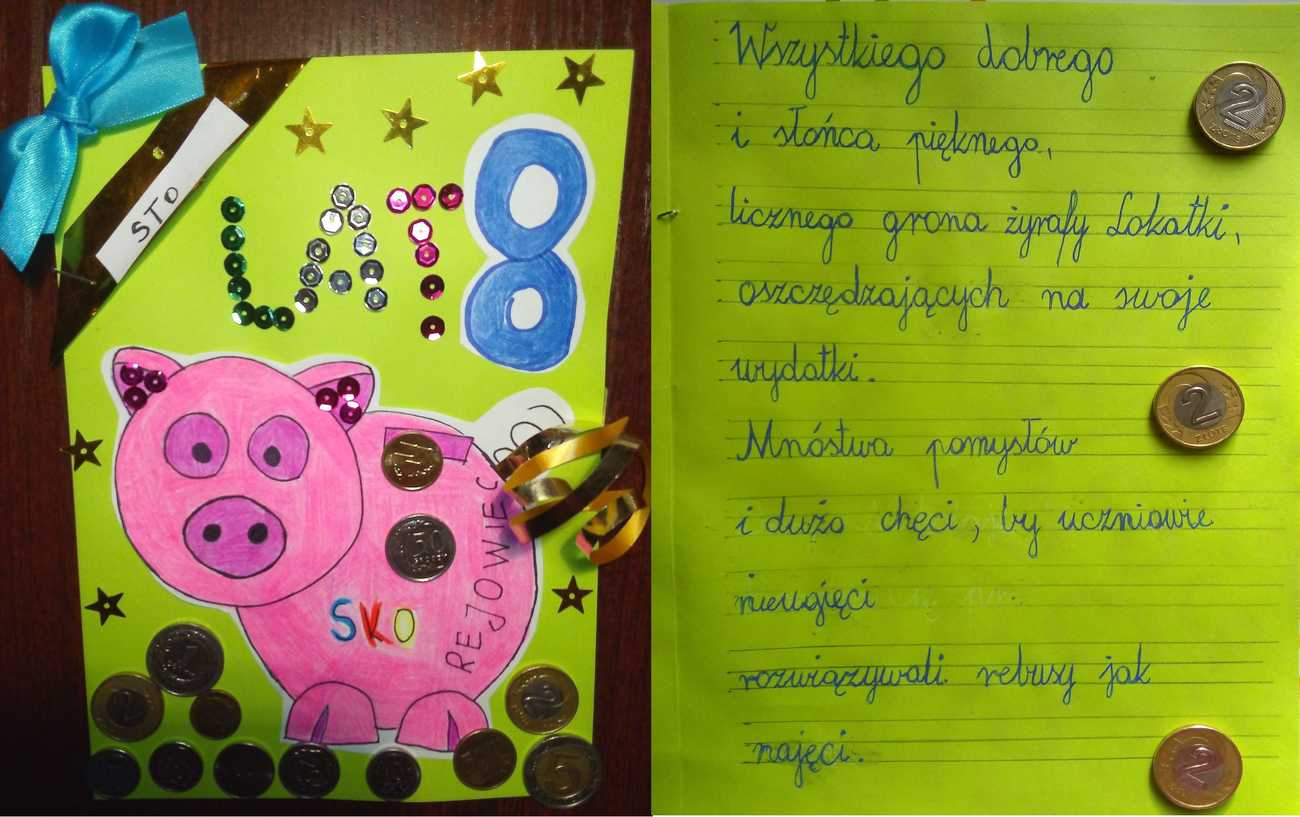 STO
LAT
80
SKO
REJOWIEC
Wszystkiego dobrego
i słońca pięknego,
licznego grona żyrafy Lokatki,
oszczędzających na swoje
wydatki.
Mnóstwa pomysłów
i dużo chęci, by uczniowie
nieugięci
rozwiązywali rebusy jak
najęci.
2
ZŁOTE
2
ZŁOTE
2
50
GROSZY
1
2
2
5